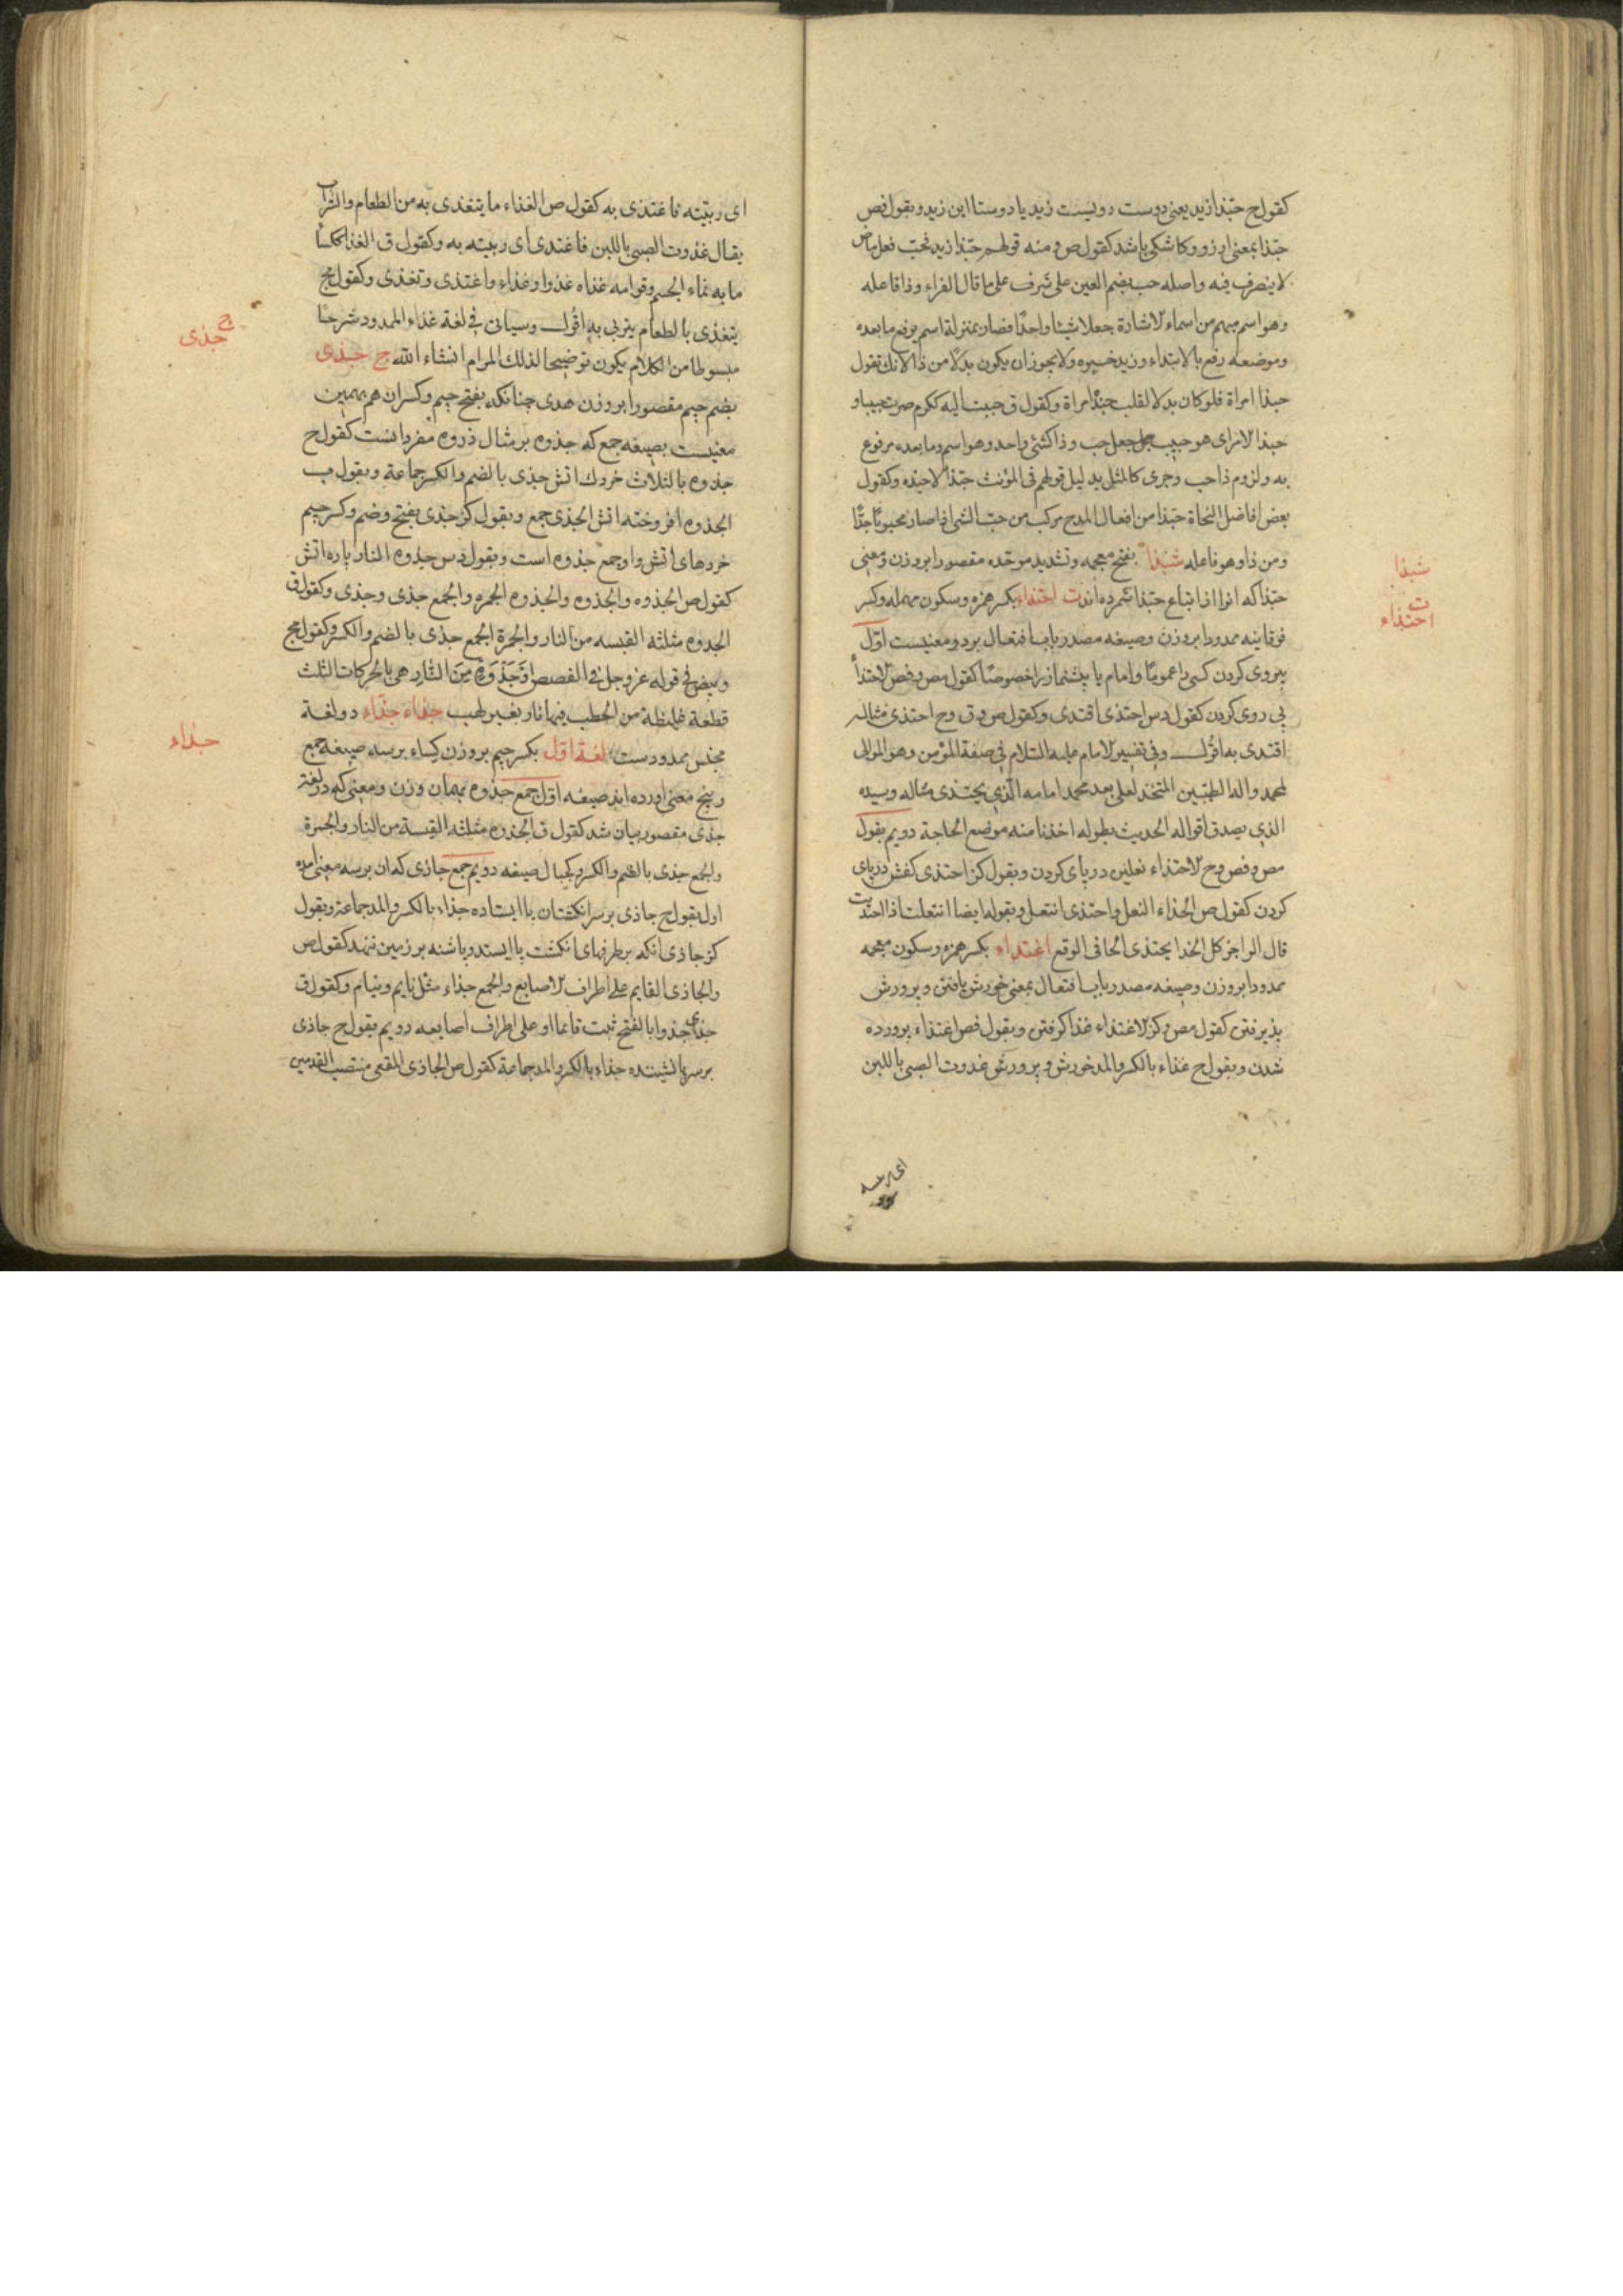 كقول ح حبّذا زيد يعنى دوست دويست زيد يا دوستا اين زيد و بقول فص
حبّذا بمعنى ارزو و كاشكى باشد كقول ص و منه قولهم حبّذا زيد نحبّ فعل ماض
لا يتصرف فيه و اصله حبب بضم العين على شرف على ما قال الفراء و ذا فاعله
و هو اسم مبهم من اسماء الاشارة جعلا شيئا واحدًا فصار بمنزلة اسم يرفع ما بعده
و موضعه رفع بالابتداء و زيد خبره ولا يجوز ان يكون بدلًا من ذا لانك تقول
حبذا امراة فلو كان بدلا لقلت حبذه امراة و كقول ق حببت اليه ككرم صرت حبيبا و
حبذا الامر اى هو حبيب جعل حب و ذا كشئى واحد و هو اسم و ما بعده مرفوع
به و لزوم ذا حب و جرى كالمثل بدليل قولهم فى المؤنث حبّذا لا حبّذه و كقول
بعض افاضل النحاة حبّذا من افعال المدح مركب من حبّ الشئ اذا صار محبوبًا جدًّا
و من ذا و هو فاعله شبّذا بفتح معجمه و تشديد موحّده مقصورا بروزن و معنى
حبّذا كه انرا از اتباع حبّذا شمرده اند ت احتذاء بكسر همزه و سكون مهمله و كسر
فوقانيه ممدودا بروزن و صيغه مصدر باب افتعال بر دو معنيست اوّل
پيروى كردن كسى را عمومًا و امام يا پيشنماز را خصوصًا كقول مص و فص الاحتذاء
پى روى كردن كقول دس احتذى اقتدى و كقول ص و ق و ح احتذى مثاله
اقتدى به اقول و فى تفسير الامام عليه السّلام فى صفة المؤمن و هو الموالى
لمحمد و اله الطيبين المتخذ لعلى بعد محمد امامه الّذى يحتذى مثاله و سيده
الذى يصدق اقواله الحديث بطوله اخذنا منه موضع الحاجة دويم بقول
مص و فص و ح الاحتذاء نعلين در پاى كردن و بقول كز احتذى كفش در پاى
كردن كقول ص الحذاء النعل و احتذى انتعل و بقوله ايضا انتعلت اذا احتذيت
قال الراجز كل الحذا يحتذى الحافى الوقع اغتذاء بكسر همزه و سكون معجمه
ممدودا بروزن و صيغه مصدر باب افتعال بمعنى خورش يافتن و پرورش
پذيرفتن كقول مص و كز الاغتذاء غذا گرفتن و بقول فص اغتذاء پرورده
شدن و بقول ح غذاء بالكسر و المد خورش و پرورش غذوت الصبى باللبن
شبذا
ت
احتذاء
اى ربيّته فاغتذى به كقول ص الغذاء ما يتغذى به من الطعام و الشراب
يقال غذوت الصبى باللبن فاغتذى اى ربيته به و كقول ق الغذا ككساء
ما به نماء الجسم و قوامه غذاه غذوا و غذاء و اغتذى و تغذى و كقول مج
يتغذى بالطعام يتربى به اقول و سياتى فى لغة غذاء الممدود شرحًا
مبسوطا من الكلام يكون توضيحا لذلك المرام انشاء الله ج جذى
بضم جيم مقصورا بروزن هدى چنانكه بفتح جيم و كسر ان هم بهمين
معنيست بصيغه جمع كه جذوه بر مثال ذروه مفرد انست كقول ح
جذوه بالثلاث خردك اتش جذى بالضم و الكسر جماعة و بقول مب
الجذوه افروخته اتش الجذى جمع و بقول كز جذى بفتح و ضم و كسر جيم
خردهاى اتش و او جمع جذوه است و بقول دس جذوه النار پاره اتش
كقول ص الجذوه و الجذوه و الجذوه الجمره و الجمع جذى و جذى و كقول ق
الجذوه مثلثه القبسه من النار و الجمرة الجمع جذى بالضم و الكسر و كقول مج
و بيض فى قوله عز و جل فى القصص اَوْ جَذْوَةٍ مِنَ النَّارِ هى بالحركات الثلث
قطعة غليظة من الحطب فيها نار بغير لهب جذاء جذاء دو لغة
مجنس ممدودست لغة اوّل بكسر جيم بروزن كساء بر سه صيغه جمع
و پنج معنى اورده اند صيغه اوّل جمع جذوه بهمان وزن و معنى كه در لغة
جذى مقصور بيان شد كقول ق الجذوه مثلثه القبسة من النار و الجمرة
و الجمع جذى بالضم و الكسر و كجبال صيغه دويم جمع جاذى كه ان بر سه معنى امده
اول بقول ح جاذى بر سر انگشتان پا ايستاده جذاء بالكسر و المد جماعة و بقول
كز جاذى انكه بر طرفهاى انگشت پا ايستد و پاشنه بر زمين ننهد كقول ص
و الجاذى القايم على اطراف الاصابع و الجمع جذاء مثل نايم و نيام و كقول ق
جذى جذوا بالفتح ثبت قائما او على اطراف اصابعه دويم بقول ح جاذى
بر سر پا نشيننده جذاء بالكسر و المد جماعة كقول ص الجاذى المقعى منتصب القدمين
ج
جذى
جذاء